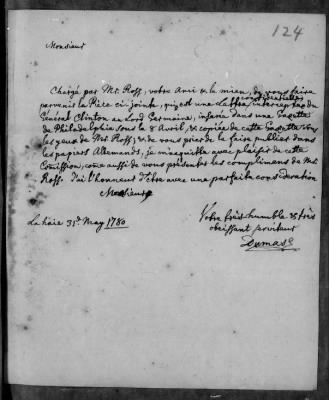 124
Monsieur
Chargé par Mr. Ross, votre Ami & le mien, de vous faire
parvenir la Pièce ci-jointe, qui est une Lettre interceptée du
Général Clinton au Lord Germaine, insérée dans une Gazette
de Philadelphia sous le 8 Avril, & copiée de cette Gazette sous
les yeux de Mr. Ross; & de vous prier de la faire publier dans
les papiers Allemands, je m'acquitte avec plaisir de cette
Comission, come aussi de vous présenter les complimens de Mr.
Ross. J'ai l'honneur d'être avec une parfaite considération
Monsieur
Votre très humble & très
La haie 31e. May 1780
obeissant serviteur
Dumas